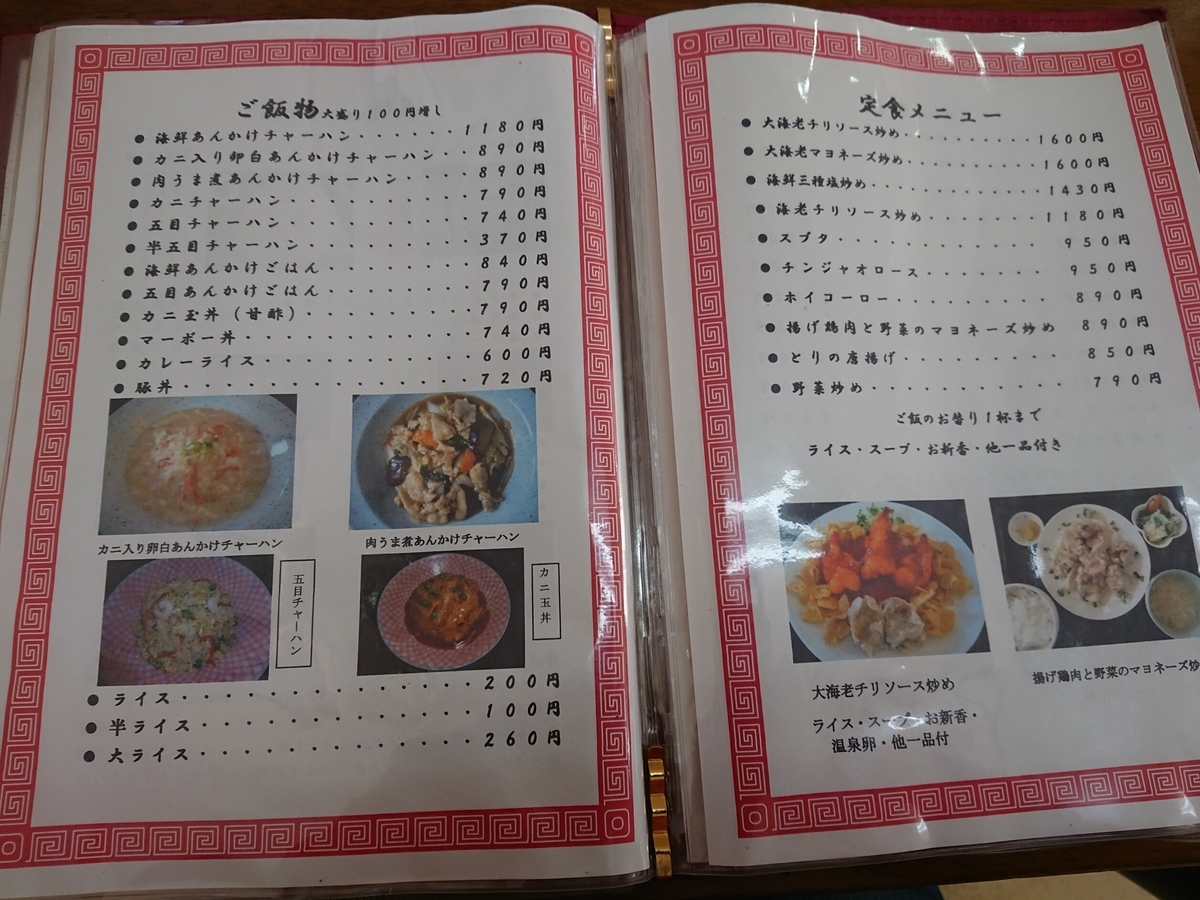 ご飯物 大盛り100円増し
● 海鮮あんかけチャーハン・・・・・・1180円
● カニ入り卵白あんかけチャーハン・・890円
● 肉うま煮あんかけチャーハン・・・・890円
● カニチャーハン・・・・・・・・・・790円
● 五目チャーハン・・・・・・・・・・740円
● 半五目チャーハン・・・・・・・・・370円
● 海鮮あんかけごはん・・・・・・・・840円
● 五目あんかけごはん・・・・・・・・790円
● カニ玉丼(甘酢)・・・・・・・・・790円
● マーボー丼・・・・・・・・・・・・740円
● カレーライス・・・・・・・・・・・600円
● 豚丼・・・・・・・・・・・・・・・720円
カニ入り卵白あんかけチャーハン
肉うま煮あんかけチャーハン
五目チャーハン
カニ玉丼
● ライス・・・・・・・・・・・・・・200円
● 半ライス・・・・・・・・・・・・・100円
● 大ライス・・・・・・・・・・・・・260円
定食メニュー
● 大海老チリソース炒め・・・・・・・・・・・1600円
● 大海老マヨネーズ炒め・・・・・・・・・・・1600円
● 海鮮三種塩炒め・・・・・・・・・・・・・1430円
● 海老チリソース炒め・・・・・・・・1180円
● スブタ・・・・・・・・・・・・・950円
● チンジャオロース・・・・・・・・950円
● ホイコーロー・・・・・・・・・・890円
● 揚げ鶏肉と野菜のマヨネーズ炒め 890円
● とりの唐揚げ・・・・・・・・・・850円
● 野菜炒め・・・・・・・・・・・・790円
ご飯のお替り1杯まで
ライス・スープ・お新香・他一品付き
大海老チリソース炒め
ライス・スープ・お新香・
温泉卵・他一品付
揚げ鶏肉と野菜のマヨネーズ炒